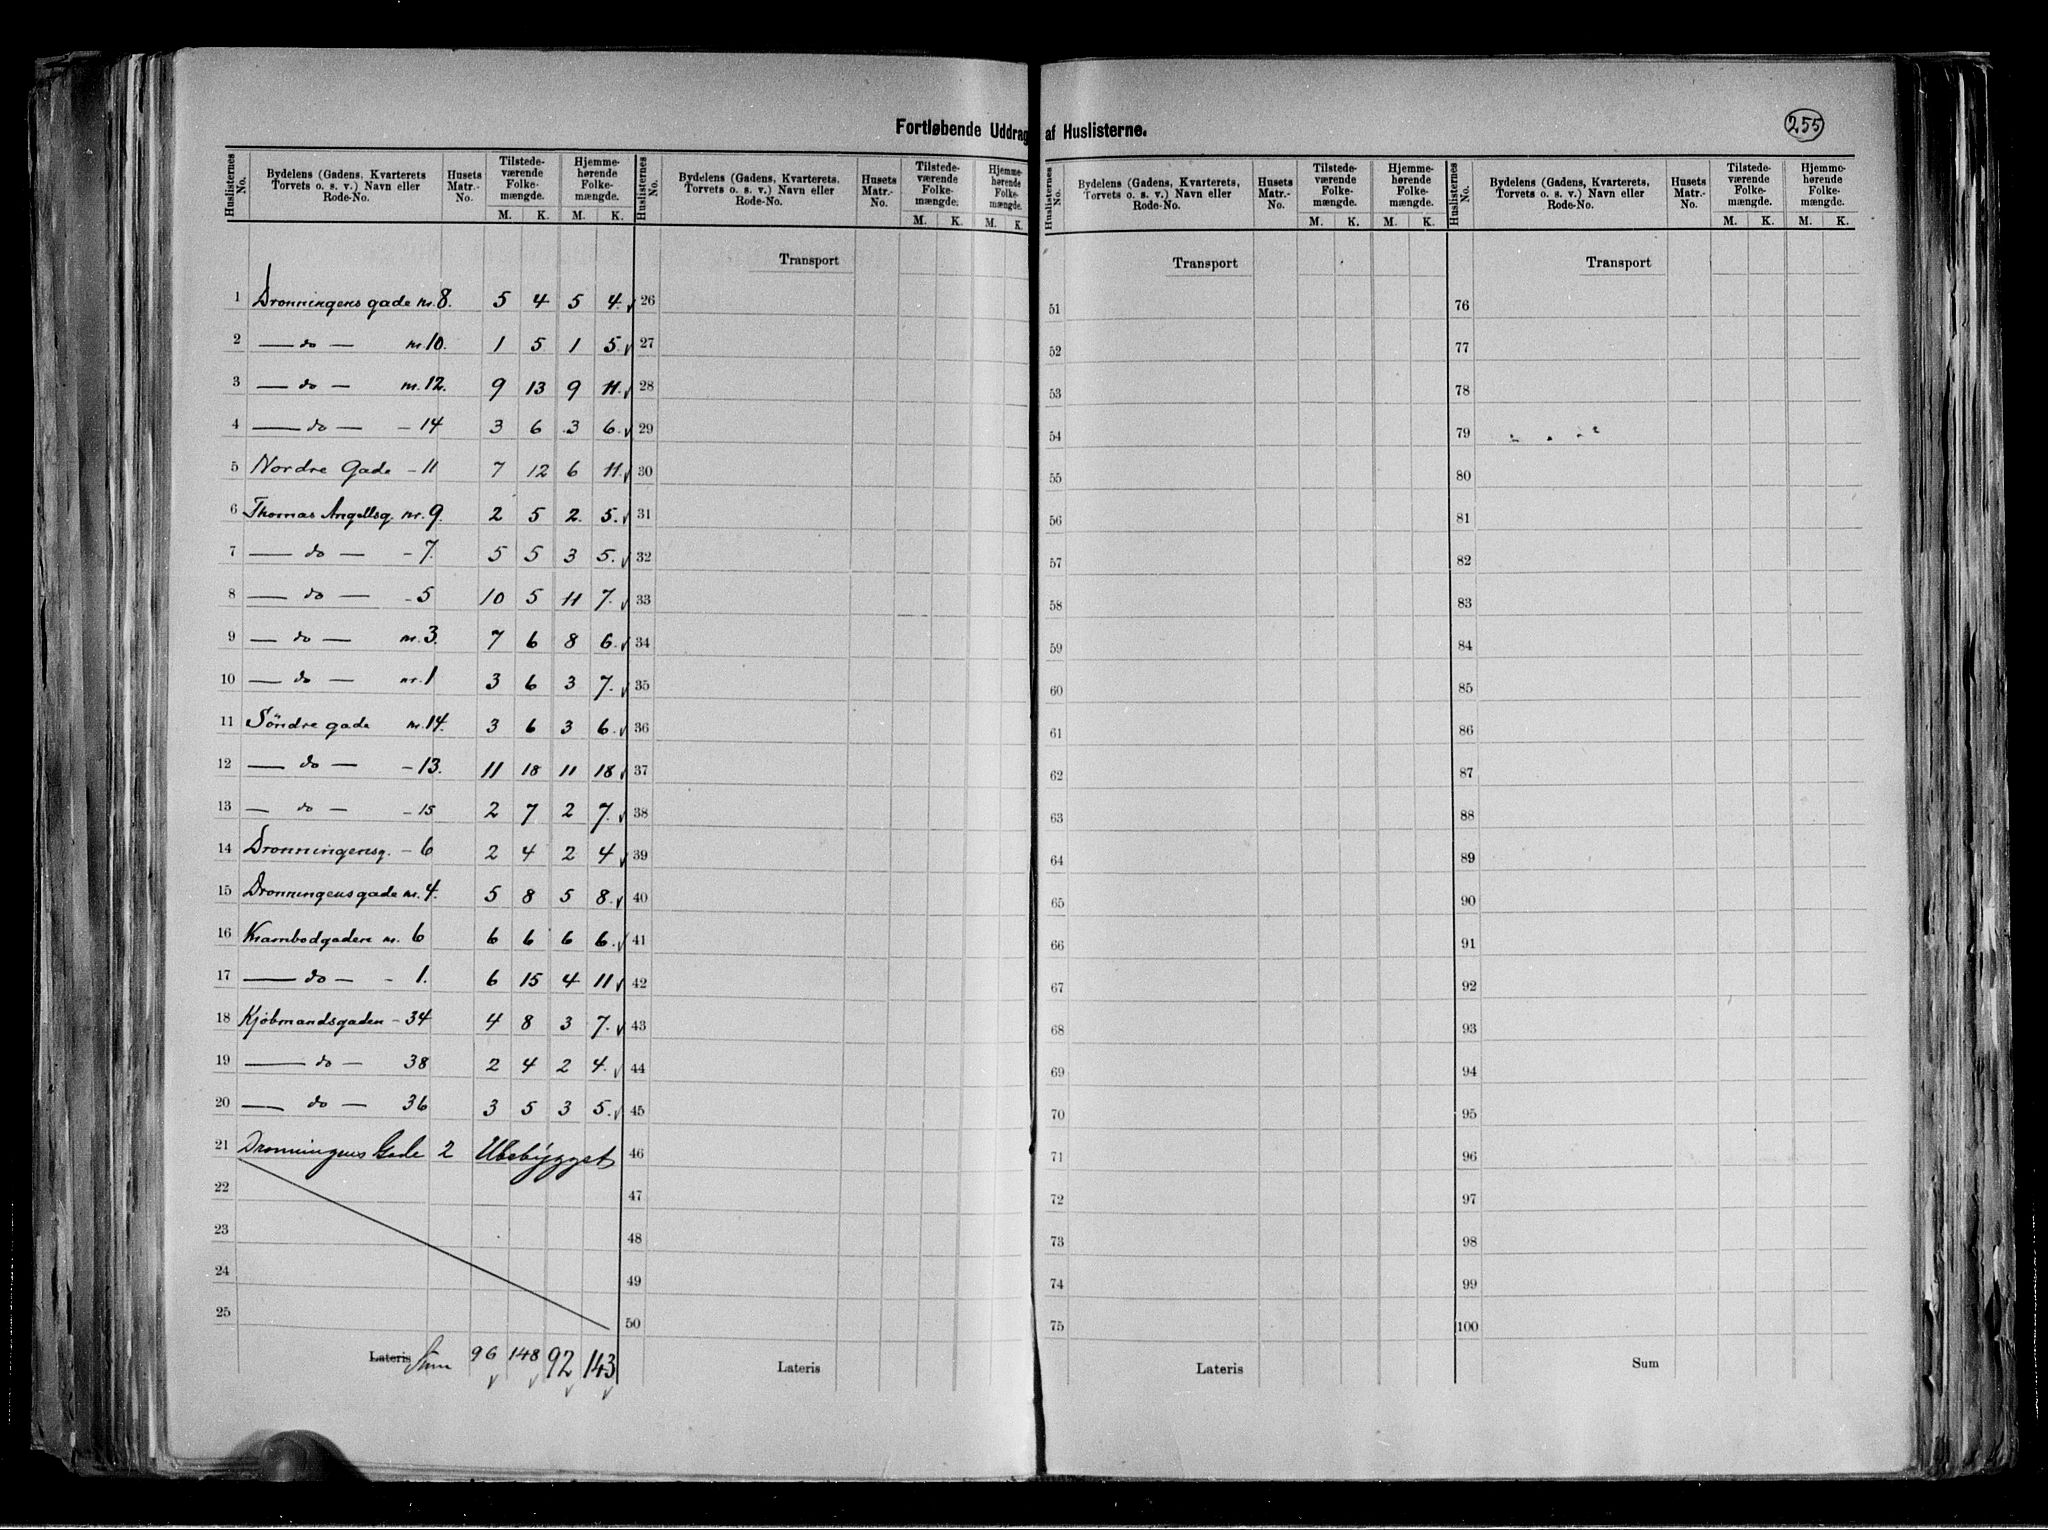 Fortløbende Uddrag af Huslisterne.
255
Huslisternes No. | Bydelens (Gadens, Kvarterets Torvets o. s. v.) Navn eller Rode-No. | Husets Matr.-No. | Tilstede-værende Folke-mængde. M. K. | Hjemme-hørende Folke-mængde. M. K.
Huslisternes No. | Bydelens (Gadens, Kvarterets, Torvets o. s. v.) Navn eller Rode-No. | Husets Matr.-No. | Tilstede-værende Folke-mængde. M. K. | Hjemme-hørende Folke-mængde. M. K.
Huslisternes No. | Bydelens (Gadens, Kvarterets, Torvets o. s. v.) Navn eller Rode-No. | Husets Matr.-No. | Tilstede-værende Folke-mængde. M. K. | Hjemme-hørende Folke-mængde. M. K.
Huslisternes No. | Bydelens (Gadens, Kvarterets, Torvets o. s. v.) Navn eller Rode-No. | Husets Matr.-No. | Tilstede-værende Folke-mængde. M. K. | Hjemme-hørende Folke-mængde. M. K.
Transport Transport Transport
1 Dronningens gade nr. 8. 5 4 5 4. 26 51 76
2 — do — nr. 10. 1 5 1 5. 27 52 77
3 — do — nr. 12. 9 13 9 11. 28 53 78
4 — do — - 14 3 6 3 6. 29 54 79
5 Nordre Gade - 11 7 12 6 11. 30 55 80
6 Thomas Angellsg. nr. 9. 2 5 2. 5. 31 56 81
7 — do — - 7. 5 5 3 5. 32 57 82
8 — do — - 5 10 5 11 7. 33 58 83
9 — do — nr. 3. 7 6 8 6. 34 59 84
10 — do — nr. 1 3 6 3 7. 35 60 85
11 Söndre gade nr. 14. 3 6 3 6. 36 61 86
12 — do — - 13. 11 18 11 18 37 62 87
13 — do — - 15 2 7 2 7. 38 63 88
14 Dronningensg. - 6 2 4 2 4 39 64 89
15 Dronningensgade nr. 4. 5 8 5 8. 40 65 90
16 Krambodgaden nr. 6 6 6 6 6. 41 66 91
17 — do — - 1. 6 15 4 11 42 67 92
18 Kjöbmandsgaden - 34 4 8 3 7. 43 68 93
19 — do — 38 2 4 2 4. 44 69 94
20 — do — 36 3 5 3 5. 45 70 95
21 Dronningens Gade 2 Ubebygget 46 71 96
22 47 72 97
23 48 73 98
24 49 74 99
25 50 75 100
Lateris Sum 96 148 92 143 Lateris Lateris Sum